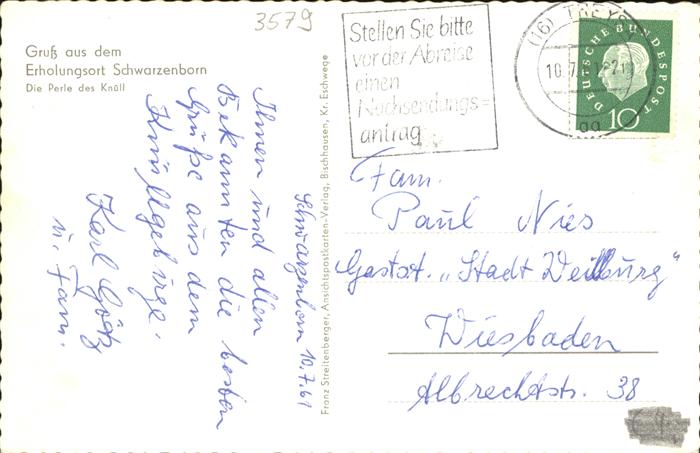 3579
Gruß aus dem
Erholungsort Schwarzenborn
Die Perle des Knüll
Stellen Sie bitte
vor der Abreise
einen
Nachsendungs=
antrag
(16) TREYSA
10.7.61
DEUTSCHE BUNDESPOST
10
Schwarzenborn 10.7.61
Ihnen und allen
Bekannten die besten
Grüße aus dem
Knüllgebirge.
Karl Götz
u. Fam.
Franz Streitenberger, Ansichtspostkarten-Verlag, Bischhausen, Kr. Eschwege
Fam.
Paul Nies
Gastst. „Stadt Weilburg"
Wiesbaden
Albrechtstr. 38